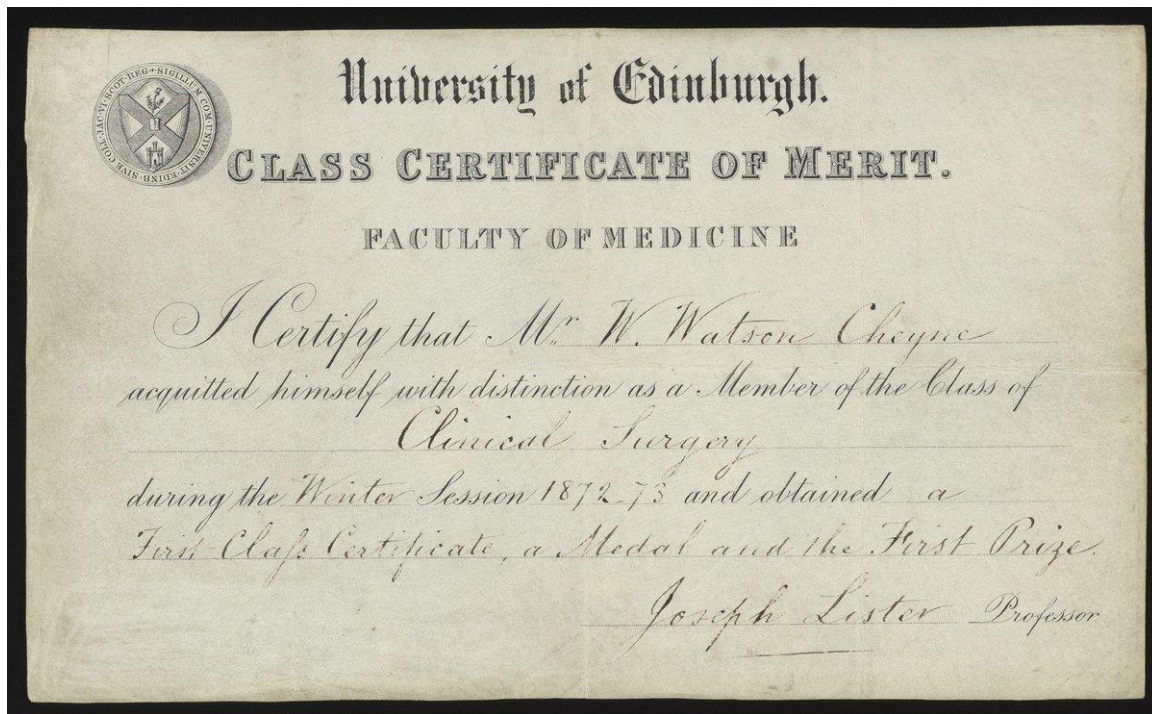 SIGILLUM COM: UNIVERSIT: EDINB: SIVE COLL: JAC: VI: SCOT: REG
University of Edinburgh.
CLASS CERTIFICATE OF MERIT.
FACULTY OF MEDICINE
I Certify that Mr. W. Watson Cheyne
acquitted himself with distinction as a Member of the Class of
Clinical Surgery
during the Winter Session 1872-73 and obtained a
First Claſs Certificate, a Medal and the First Prize.
Joseph Lister Professor